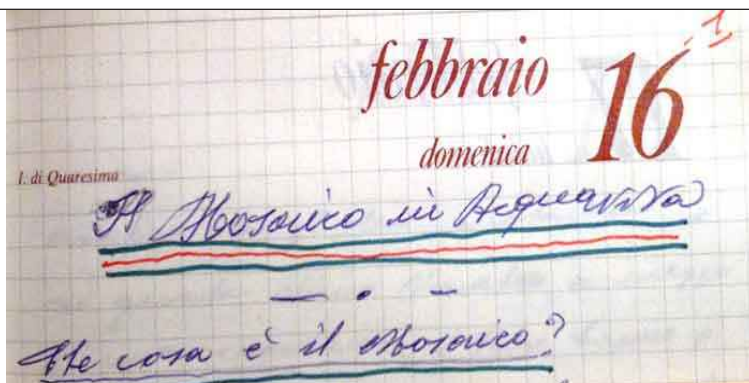 - 1
febbraio 16
domenica
I. di Quaresima
Il Mosaico in Acquaviva
— . —
Che cosa è il Mosaico?